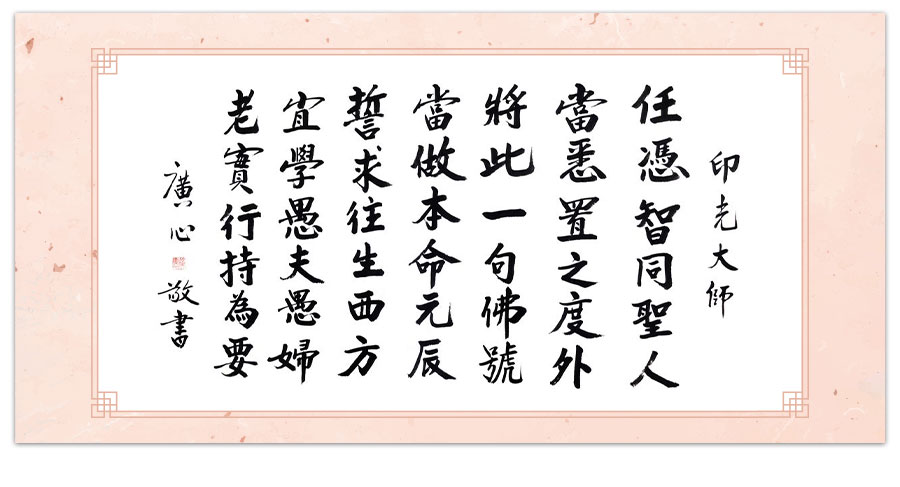 印光大師
任憑智同聖人
當悉置之度外
將此一句佛號
當做本命元辰
誓求往生西方
宜學愚夫愚婦
老實行持為要
廣心
敬書